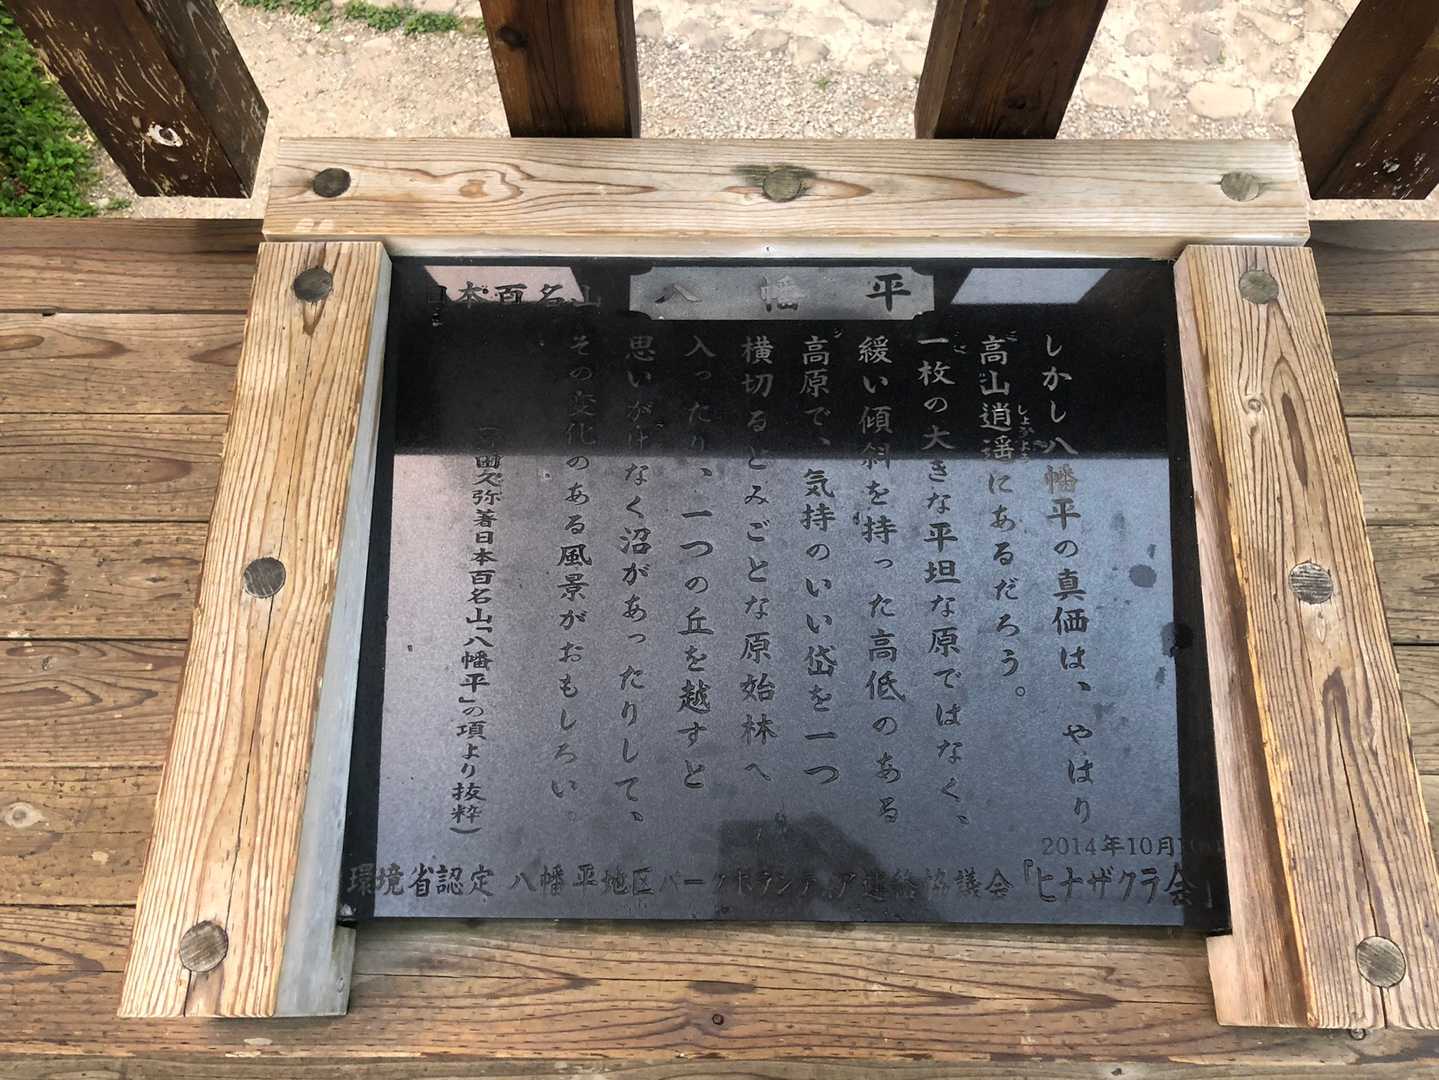 日本百名山
八幡平
しかし八幡平の真価は、やはり
高山逍遥にあるだろう。
しょうよう
一枚の大きな平坦な原ではなく、
緩い傾斜を持った高低のある
高原で、気持のいい岱を一つ
横切るとみごとな原始林へ
入ったり、一つの丘を越すと
思いがけなく沼があったりして、
その変化のある風景がおもしろい。
田久弥著日本百名山「八幡平」の項より抜粋）
2014年10月
環境省認定 八幡平地区パークボランティア連絡協議会『ヒナザクラ会』